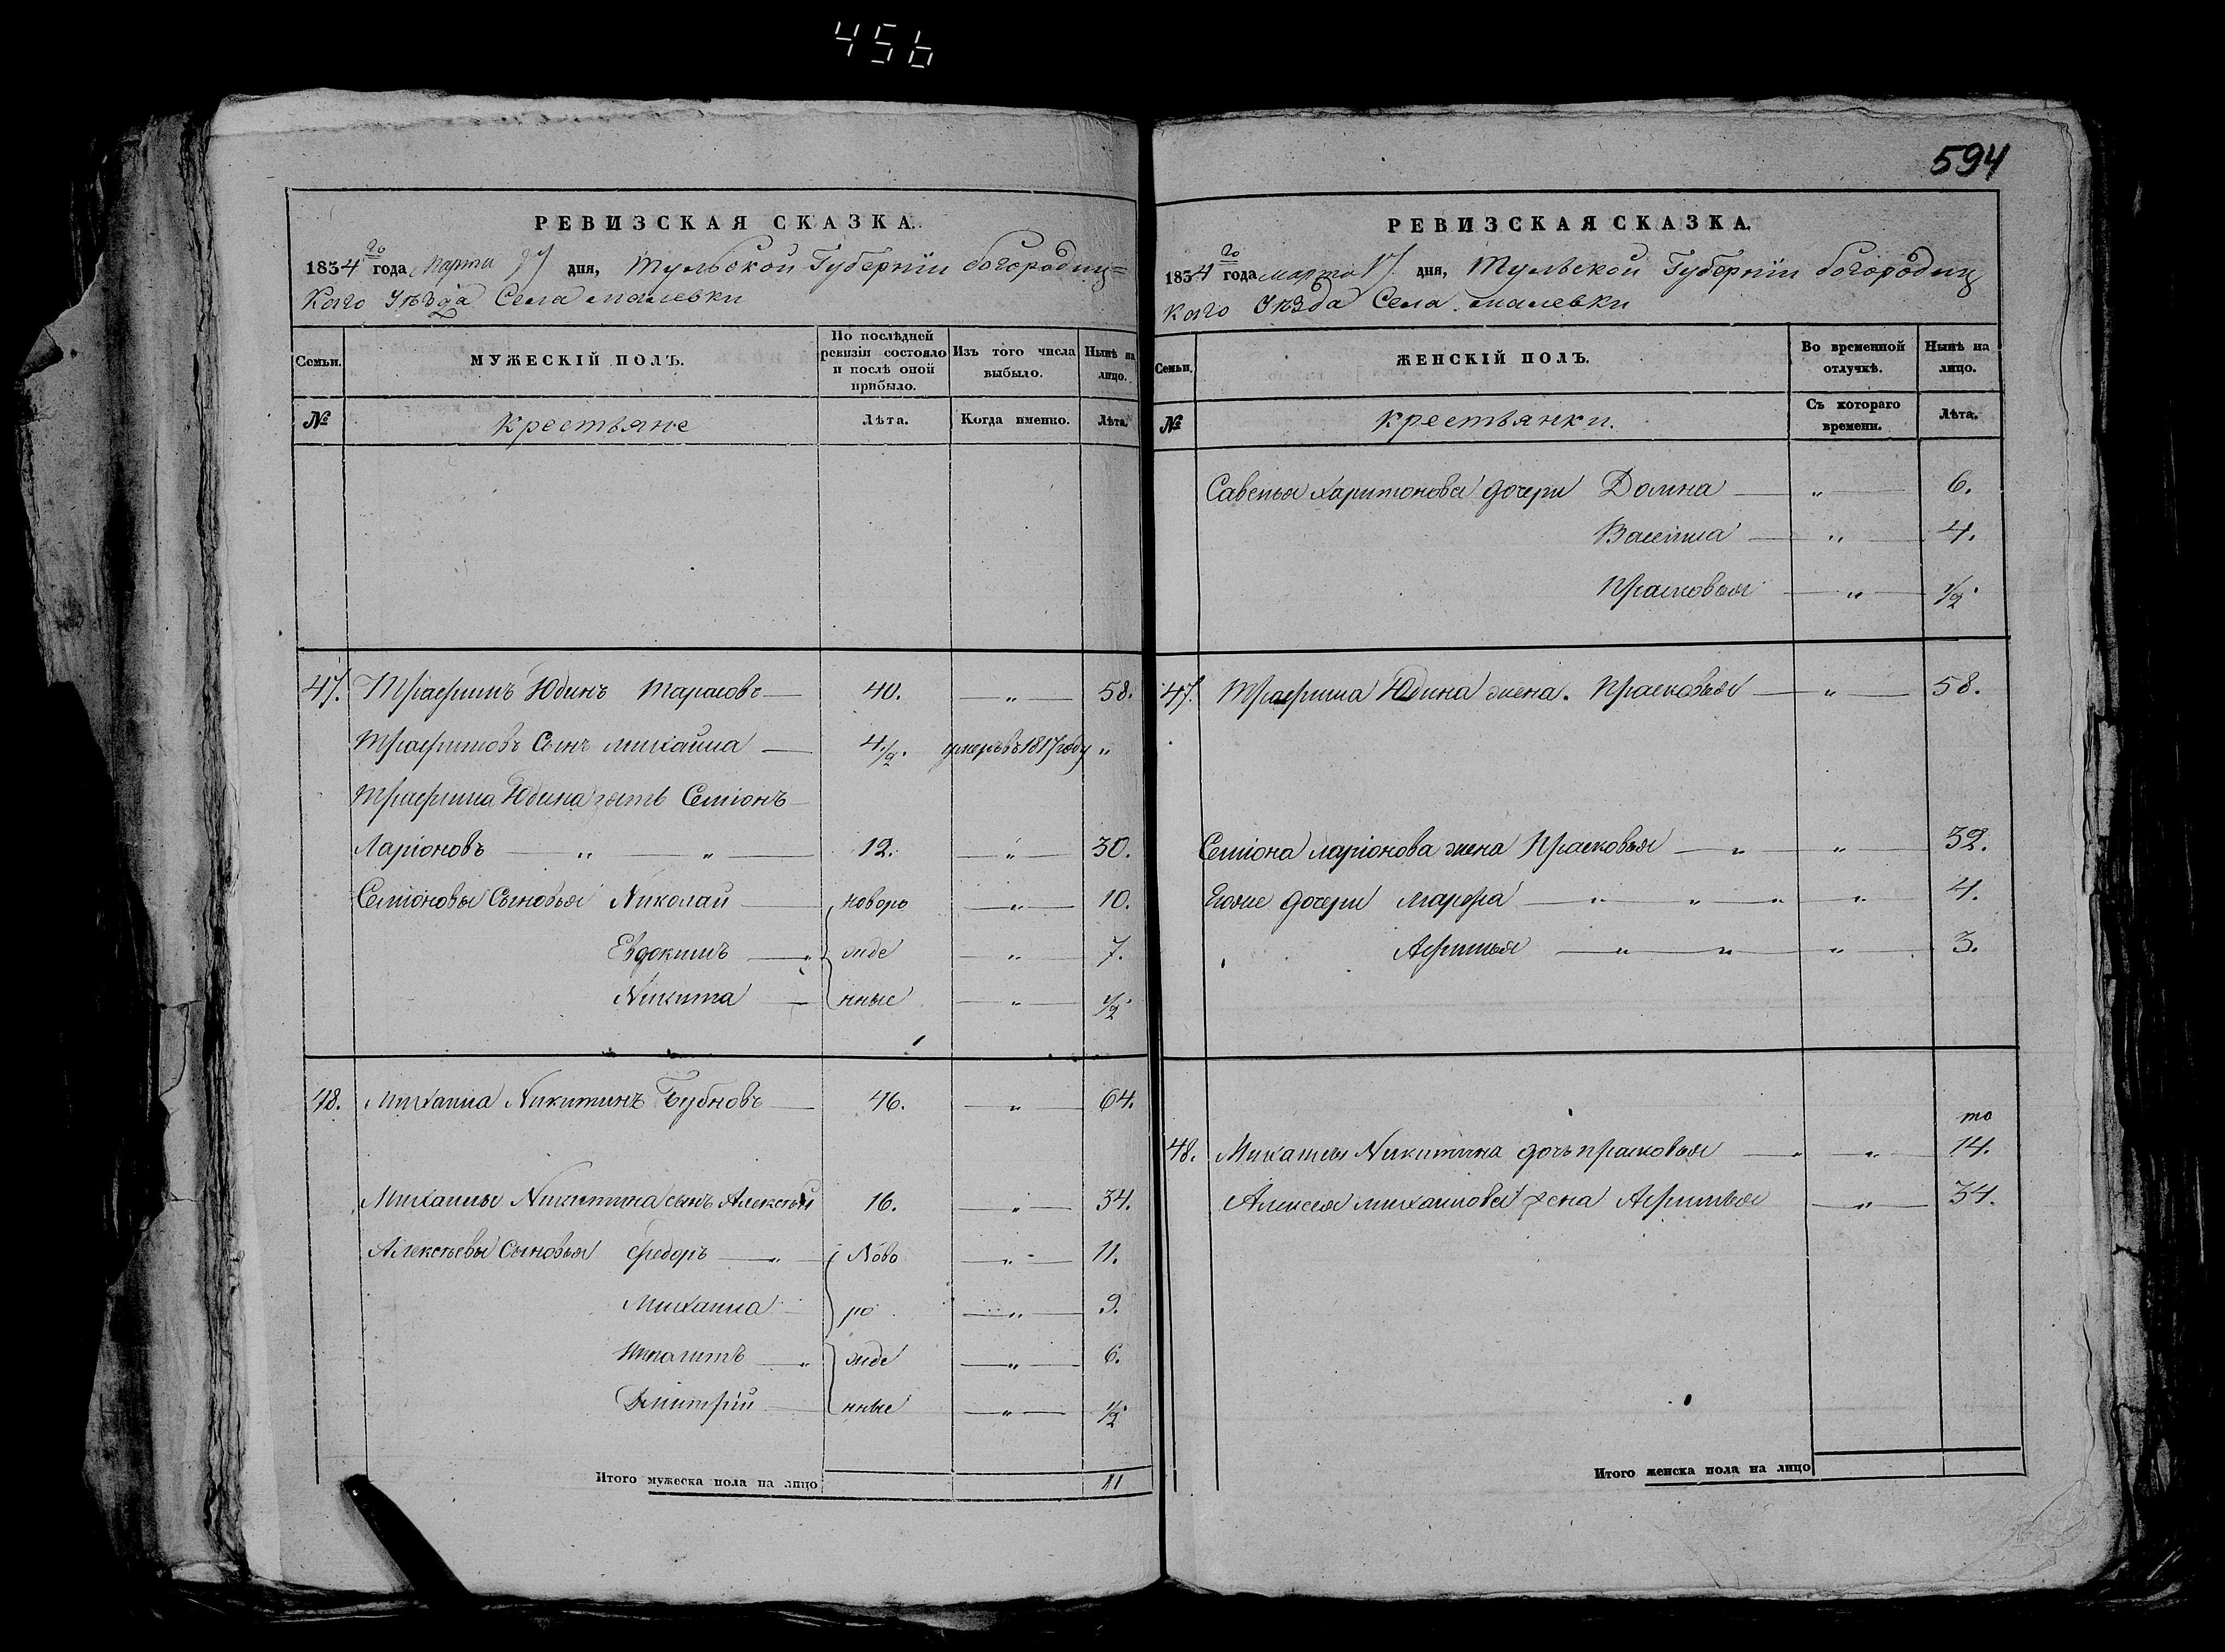 456
594
РЕВИЗСКАЯ СКАЗКА.
1834 го года Марта 17 дня, Тульской Губернiи богородиц=
Каго Уѣзда Села малевки
Семьи. МУЖЕСКІЙ ПОЛЪ. По послѣдней ревизіи состояло и послѣ оной прибыло. Изъ того числа выбыло. Нынѣ на лицо.
№ Крестьяне Лѣта. Когда именно. Лѣта.
47. Трафимъ Юдинъ Тарасовъ 40. „ 58.
Трафимовъ Сынъ михайла 4 1/2. умеръ въ 1817 году „
Трафима Юдина зять Семiонъ
Ларiоновъ „ „ 12. „ 30.
Семiоновы Сыновья Николай новоро „ 10.
Евдокимъ „ жде „ 7.
Никита нные „ 1/2
48. Михаила Никитинъ Бубновъ 46. „ 64.
Михаилы Никитина сынъ Алексѣй 16. „ 34.
Алексѣевы Сыновья Федоръ „ Ново „ 11.
Михаила ро „ 9.
Ипатъ „ жде „ 6.
Дмитрiй нные „ 1/2
Итого мужеска пола на лицо 11
РЕВИЗСКАЯ СКАЗКА.
1834 го года марта 17 дня, Тульской Губернiи богородиц
каго Уѣзда Села малевки
Семьи. ЖЕНСКІЙ ПОЛЪ. Во временной отлучкѣ. Нынѣ на лицо.
№ Крестьянки. Съ котораго времени. Лѣта.
Савелья Харитонова дочери Домна „ 6.
Васёна „ 4.
Прасковья „ 1/2
47. Трафима Юдина жена. Прасковья „ 58.
Семiона ларiонова жена Прасковья „ „ 32.
Ихже дочери марфа „ „ „ „ 4.
Афимья „ „ „ 3.
то
48. Михаилы Никитина дочь прасковья „ „ 14.
Алексея михаилова жена Афимья „ 34.
Итого женска пола на лицо